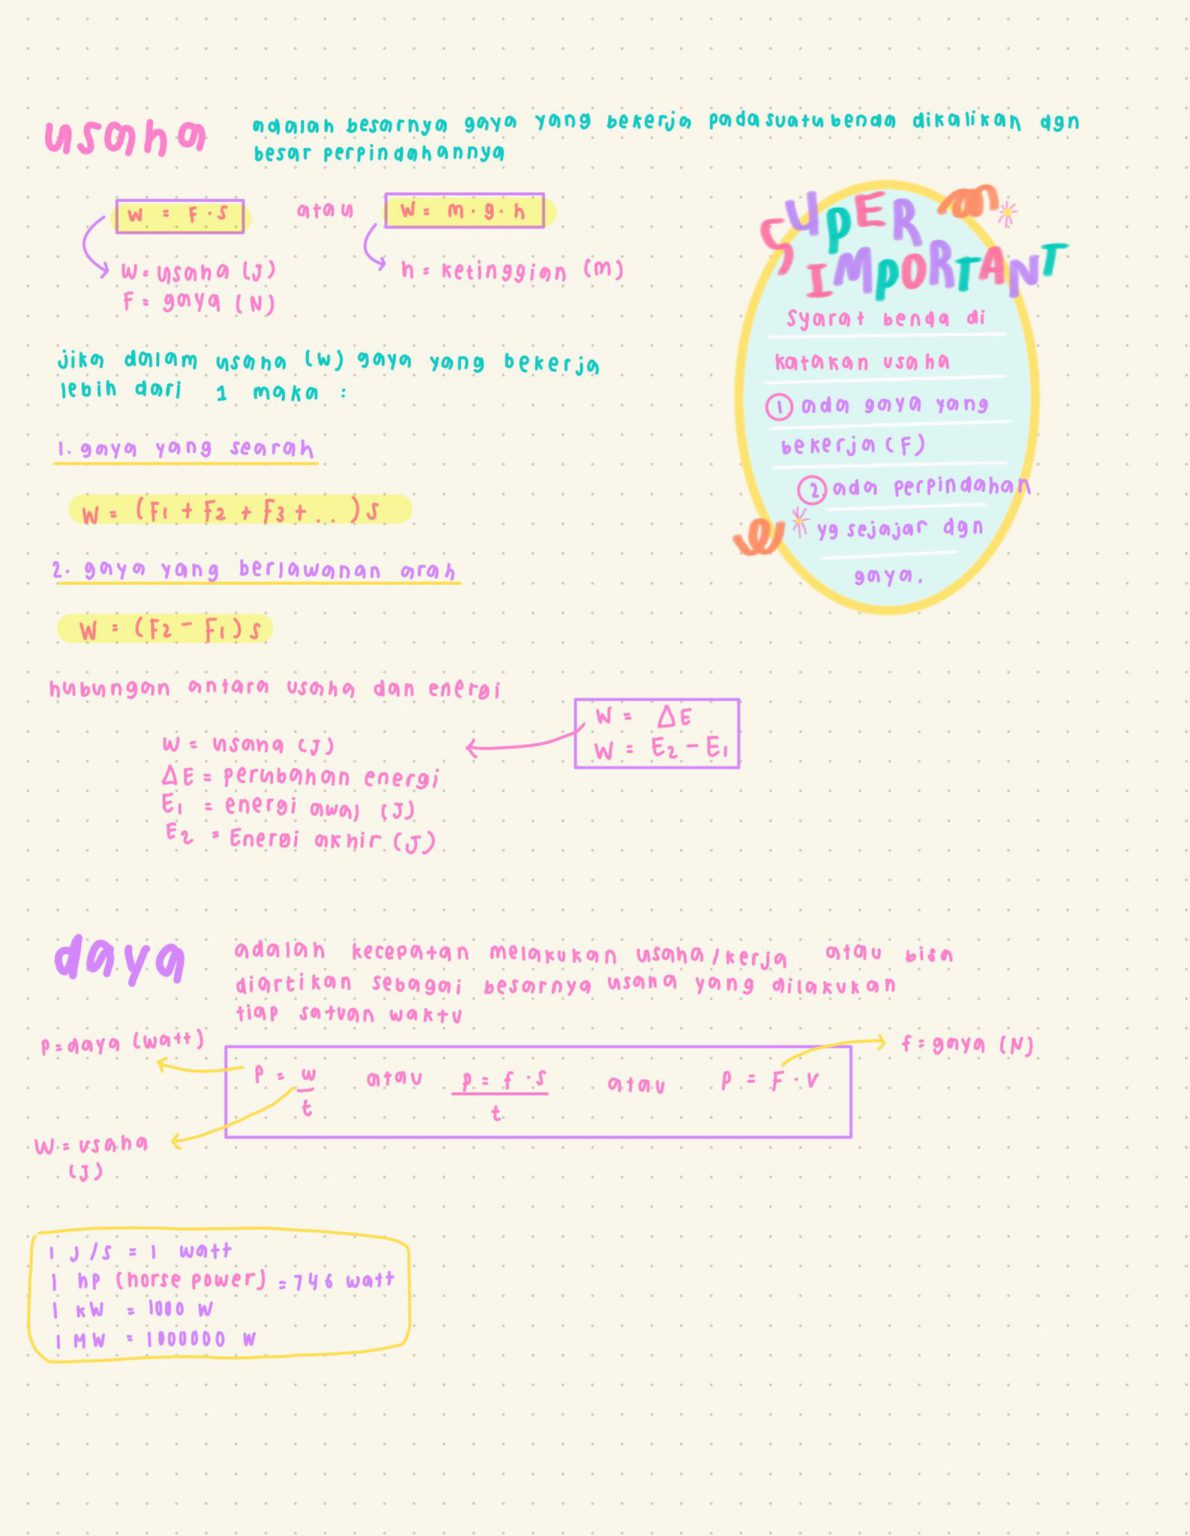 usaha
adalah besarnya gaya yang bekerja pada suatu benda dikalikan dgn
besar perpindahannya
W = F . s atau W = m . g . h
W = usaha (J)
F = gaya (N)
h = ketinggian (m)
SUPER
IMPORTANT
syarat benda di
katakan usaha
1 ada gaya yang
bekerja (F)
2. ada perpindahan
yg sejajar dgn
gaya.
jika dalam usaha (W) gaya yang bekerja
lebih dari 1 maka :
1. gaya yang searah
W = (F1 + F2 + F3 + ..) s
2. gaya yang berlawanan arah
W = (F2 - F1) s
hubungan antara usaha dan energi
W = ΔE
W = E2 - E1
W = usaha (J)
ΔE = perubahan energi
E1 = energi awal (J)
E2 = Energi akhir (J)
daya
adalah kecepatan melakukan usaha/kerja atau bisa
diartikan sebagai besarnya usaha yang dilakukan
tiap satuan waktu
P = daya (watt)
f = gaya (N)
P = w/t atau p = f . s/t atau P = F . v
W = usaha
(J)
1 J/s = 1 watt
1 hp (horse power) = 746 watt
1 kW = 1000 W
1 MW = 1000000 W